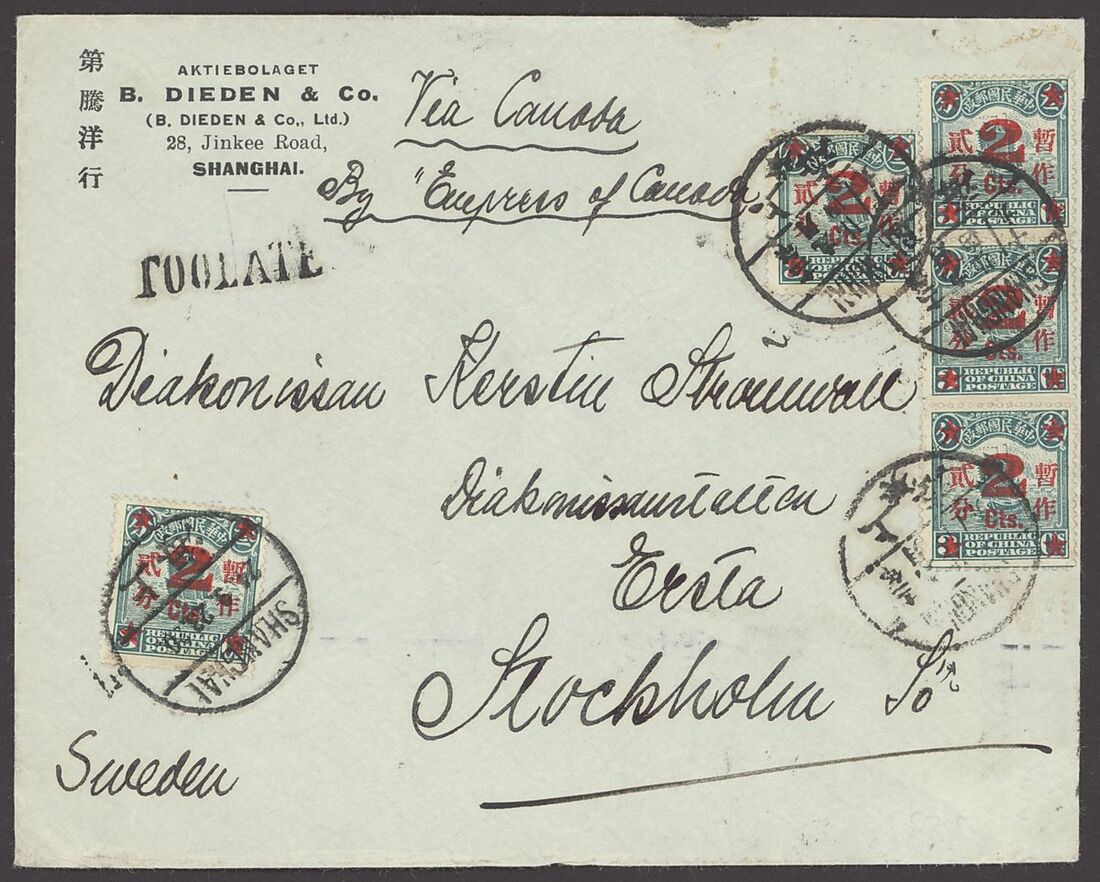 第騰洋行
AKTIEBOLAGET
B. DIEDEN & Co.
(B. DIEDEN & Co., Ltd.)
28, Jinkee Road,
SHANGHAI.
Via Canada
By "Empress of Canada
TOOLATE
中華民國郵政
暫作
貳分
2
Cts.
REPUBLIC
OF CHINA
POSTAGE
中華民國郵政
暫作
貳分
2
Cts.
REPUBLIC
OF CHINA
POSTAGE
SHANGHAI
中華民國郵政
暫作
貳分
2
Cts.
REPUBLIC
OF CHINA
POSTAGE
SHANGHAI
中華民國郵政
暫作
貳分
2
Cts.
REPUBLIC
OF CHINA
POSTAGE
SHANGHAI
Diakonissan Kerstin
Diakonissanstalten
Ersta
Stockholm So
中華民國郵政
暫作
貳分
2
Cts.
REPUBLIC
OF CHINA
POSTAGE
SHANGHAI
Sweden